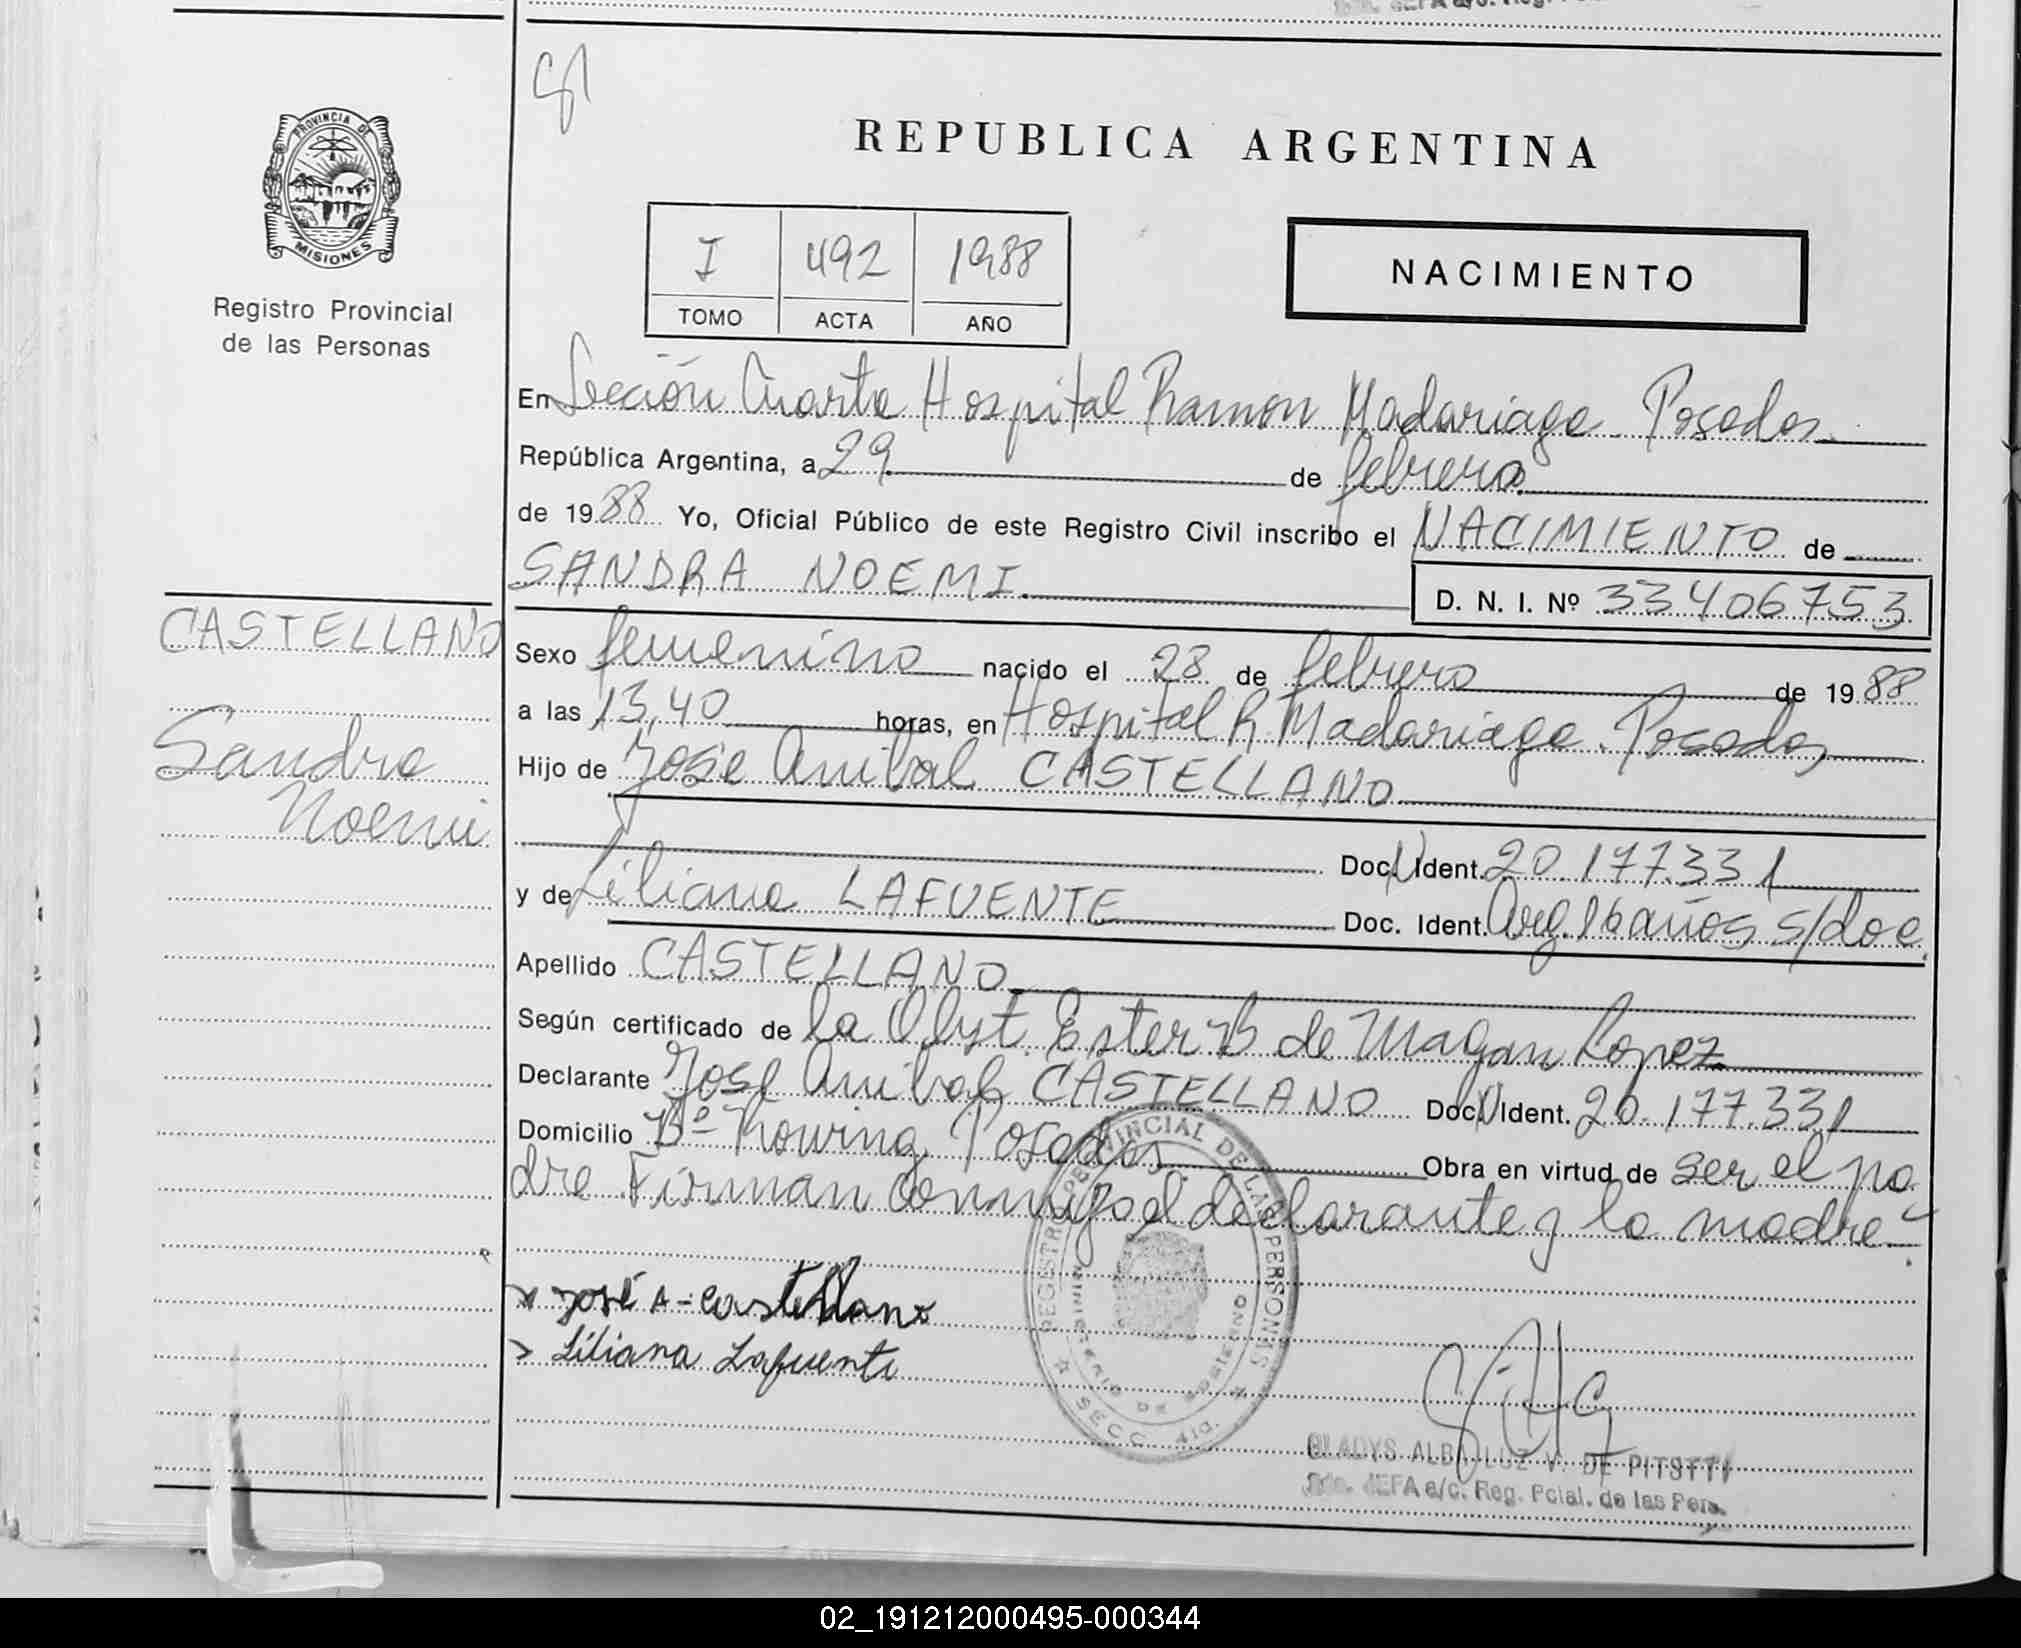 REPUBLICA ARGENTINA
PROVINCIA DE
MISIONES
Registro Provincial
de las Personas
I 492 1988
TOMO ACTA AÑO
NACIMIENTO
En Sección Cuarta Hospital Ramon Madariaga. Posadas.
República Argentina, a 29 de febrero
de 1988 Yo, Oficial Público de este Registro Civil inscribo el NACIMIENTO de
SANDRA NOEMI. D. N. I. Nº 33406753
CASTELLANO
Sandra
Noemi
Sexo femenino nacido el 28 de febrero de 1988
a las 13,40 horas, en Hospital R. Madariaga. Posadas
Hijo de José Anibal CASTELLANO
Doc. N Ident. 20.177.331
y de Liliana LAFUENTE Doc. Ident. Arg. 16 años s/doc.
Apellido CASTELLANO.
Según certificado de la Obst. Ester B de Magan Lopez
Declarante José Anibal CASTELLANO Doc. N Ident. 20.177.331
Domicilio Bº Rowing Posadas. Obra en virtud de ser el pa
dre Firman conmigo el declarante y la madre-
José A-Castellano
Liliana Lafuente
REGISTRO PROVINCIAL DE LAS PERSONAS
MINISTERIO DE GOBIERNO
SECC. 4ta.
GLADYS ALBA LUZ V. DE
JEFA a/c. Reg. Pcial. de las Pers.
02_191212000495-000344